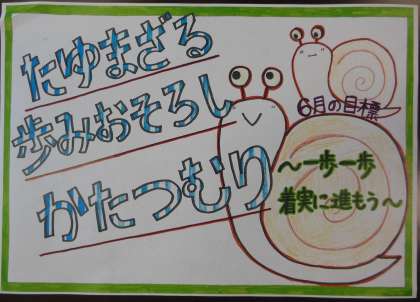 たゆまざる
歩みおそろし
かたつむり
6月の目標
～一歩一歩
着実に進もう～